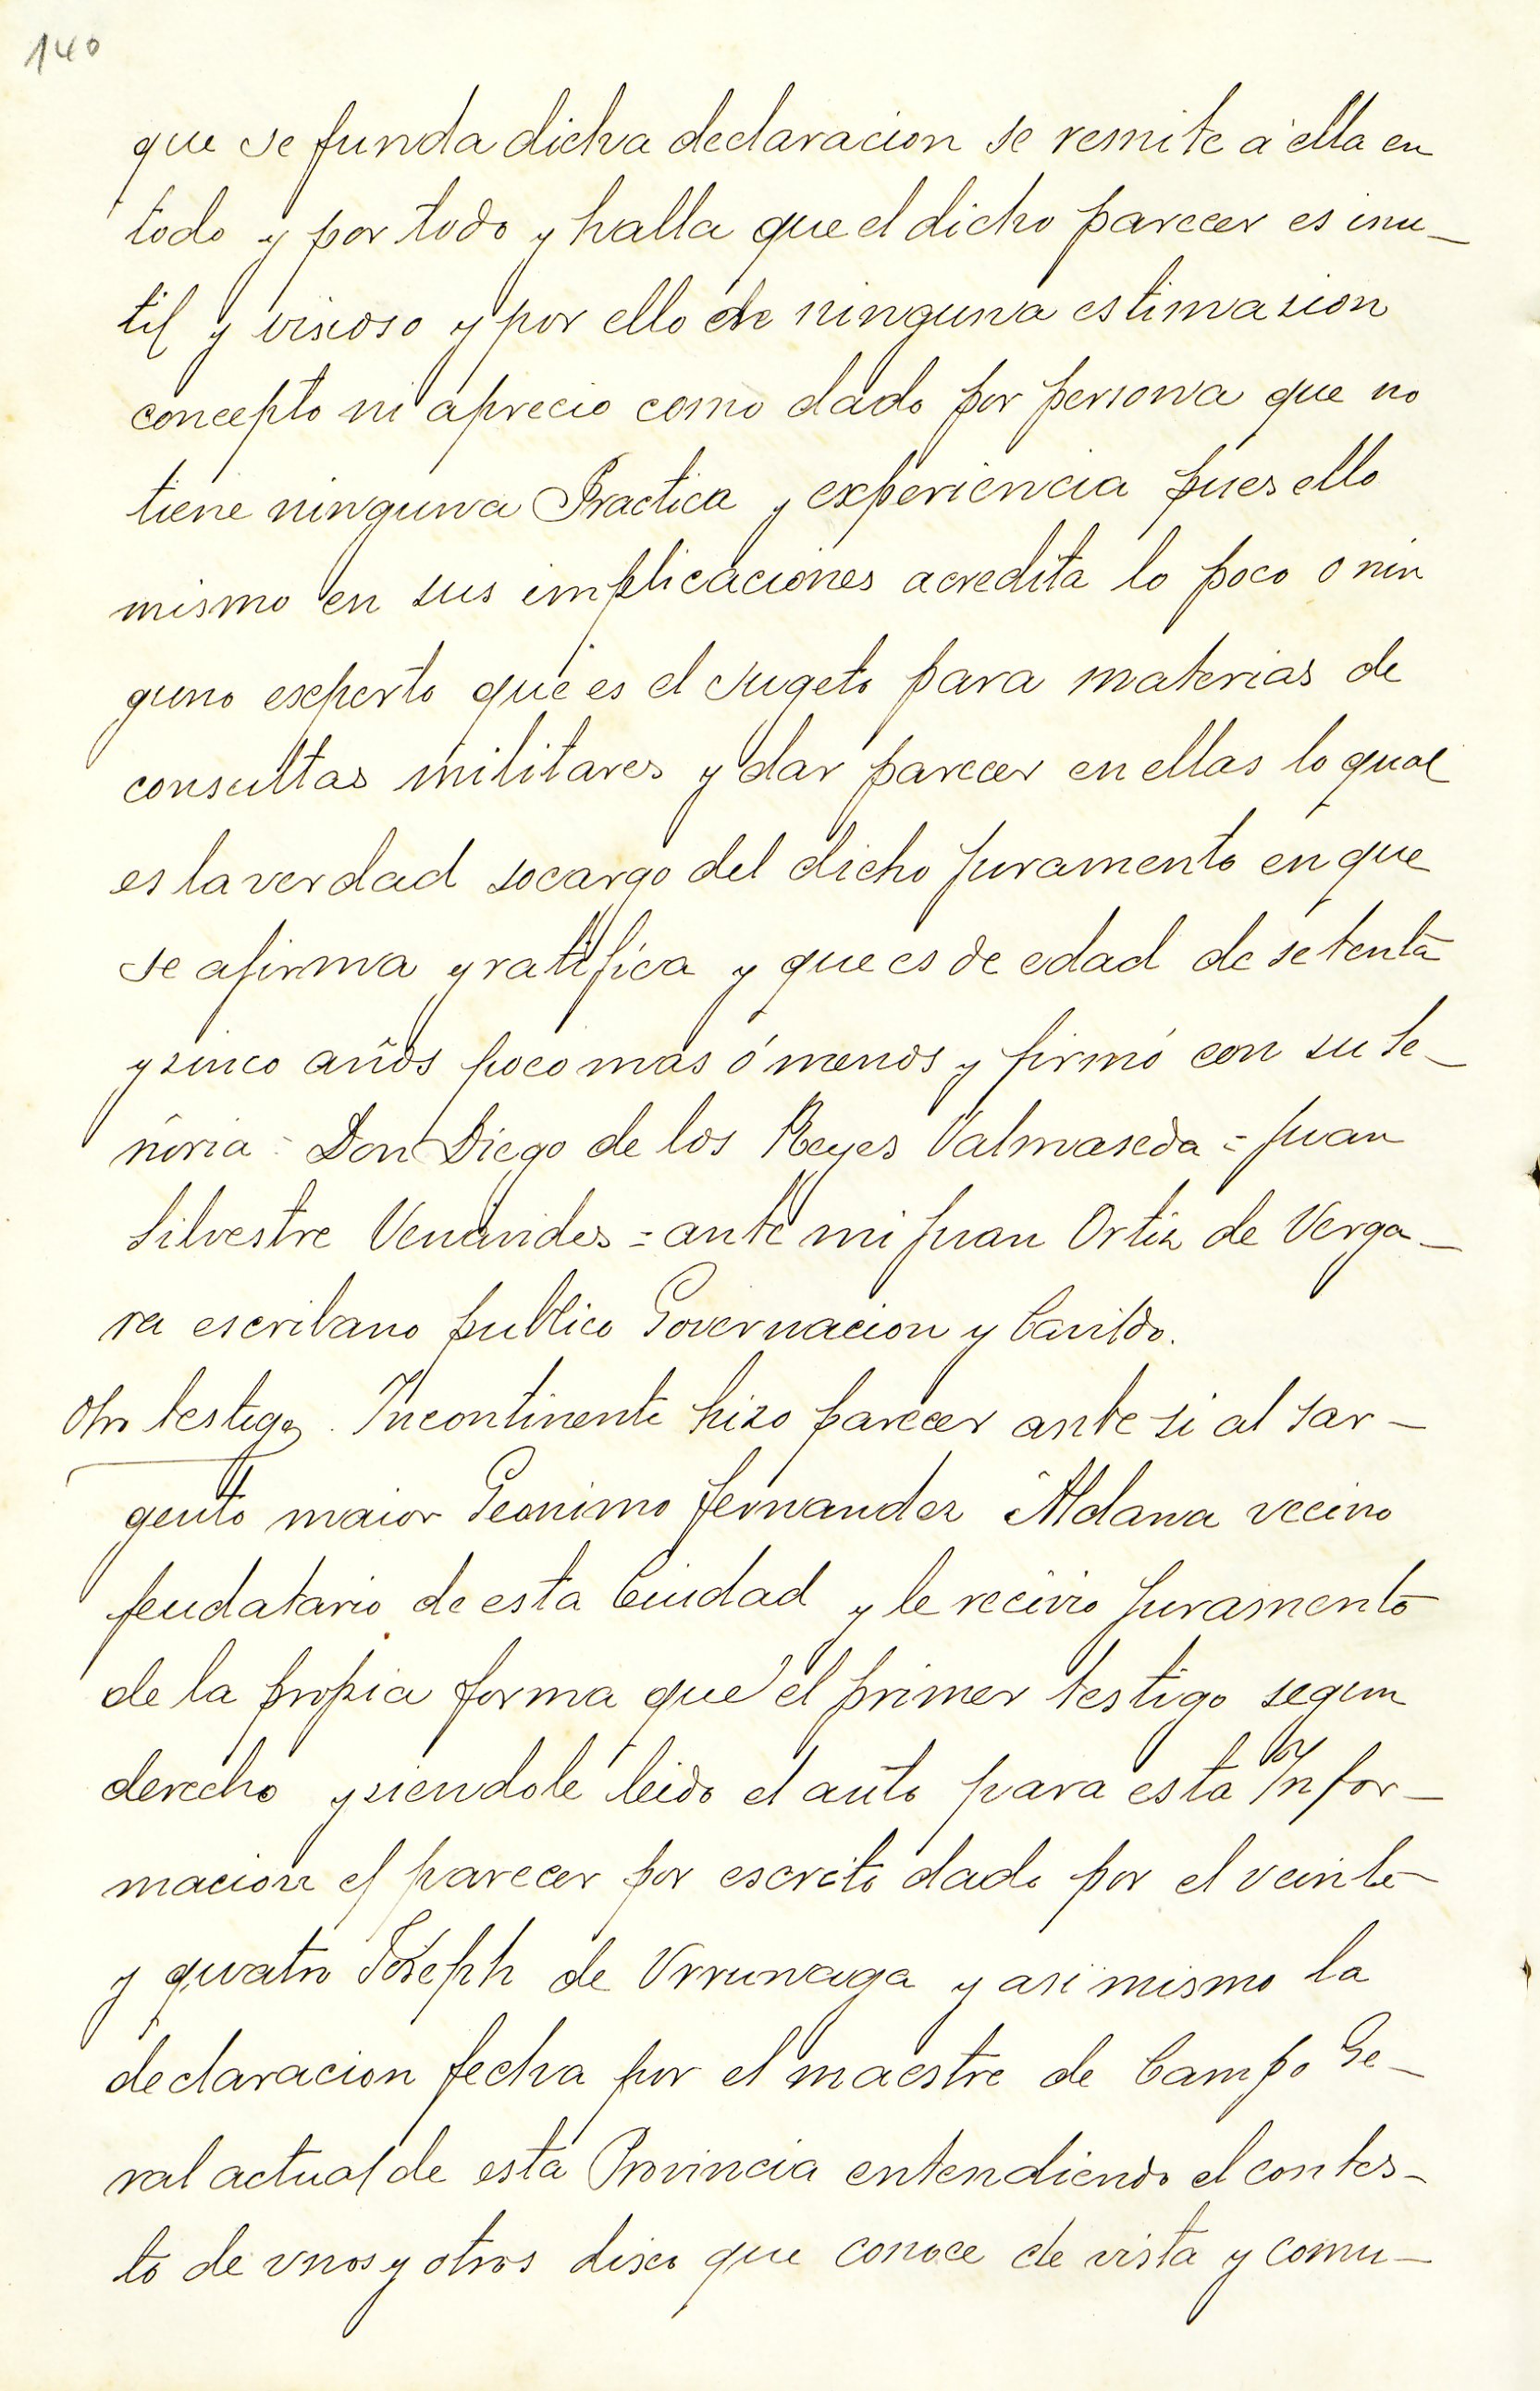 140
que se funda dicha declaracion se remite á ella en
todo y por todo y halla que el dicho parecer es inu-
til y vicioso y por ello de ninguna estimasion
concepto ni aprecio como dado por persona que no
tiene ninguna Practica y experiencia pues ello
mismo en sus implicaciones acredita lo poco o nin
guno experto que es el sugeto para materias de
consultas militares y dar parecer en ellas lo qual
es la verdad socargo del dicho Juramento en que
se afirma y ratifica y que es de edad de setenta
y sinco años poco mas ó menos y firmó con su Se-
ñoria = Don Diego de los Reyes Valmaseda = Juan
Silvestre Venavides = ante mi Juan Ortiz de Verga-
ra escribano publico Governacion y Cavildo.
Otro testigo. Incontinente hizo parecer ante si al Sar-
gento maior Geonimo fernandez Aldana vecino
feudatario de esta Ciudad y le recivio Juramento
de la propia forma que el primer testigo segun
derecho y siendole leido el auto para esta Infor-
macion el parecer por escrito dado por el veinte
y quatro Joseph de Vrrunaga y asi mismo la
declaracion fecha por el maestre de Campo Ge-
ral actual de esta Provincia entendiendo el contes-
to de vnos y otros dixo que conoce de vista y comu-